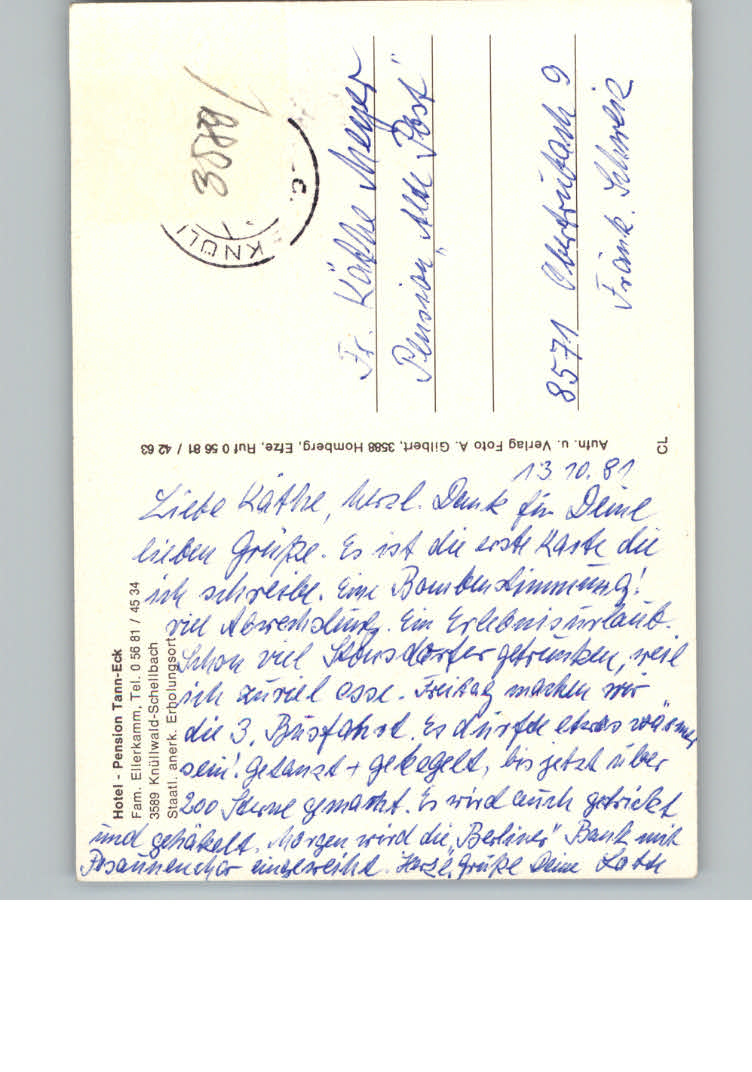 Hotel - Pension Tann-Eck
Fam. Ellerkamm, Tel. 0 56 81 / 45 34
3589 Knüllwald-Schellbach
Staatl. anerk. Erholungsort
13.10.81
Liebe Käthe, herzl. Dank für Deine
lieben Grüße. Es ist die erste Karte die
ich schreibe. Eine Bombenstimmung!
viel Abwechslung. Ein Erlebnisurlaub.
Schon viel Stonsdorfer getrunken, weil
ich zuviel esse. Freitag machen wir
die 3. Busfahrt. Es dürfte etwas wärmer
sein! Getanzt + gekegelt, bis jetzt über
200 Sterne gemacht. Es wird auch gestrickt
und gehäkelt. Morgen wird die „Berliner" Bank mit
Posaunenchor eingeweiht. Herzl. Grüße Deine
Aufn. u. Verlag Foto A. Gilbert, 3588 Homberg, Efze, Ruf 0 56 81 / 42 63
CL
3589
KNÜLL
Fr. Käthe Meyer
Pension „Alte Post"
8571 Obertrubach 9
Fränk. Schweiz